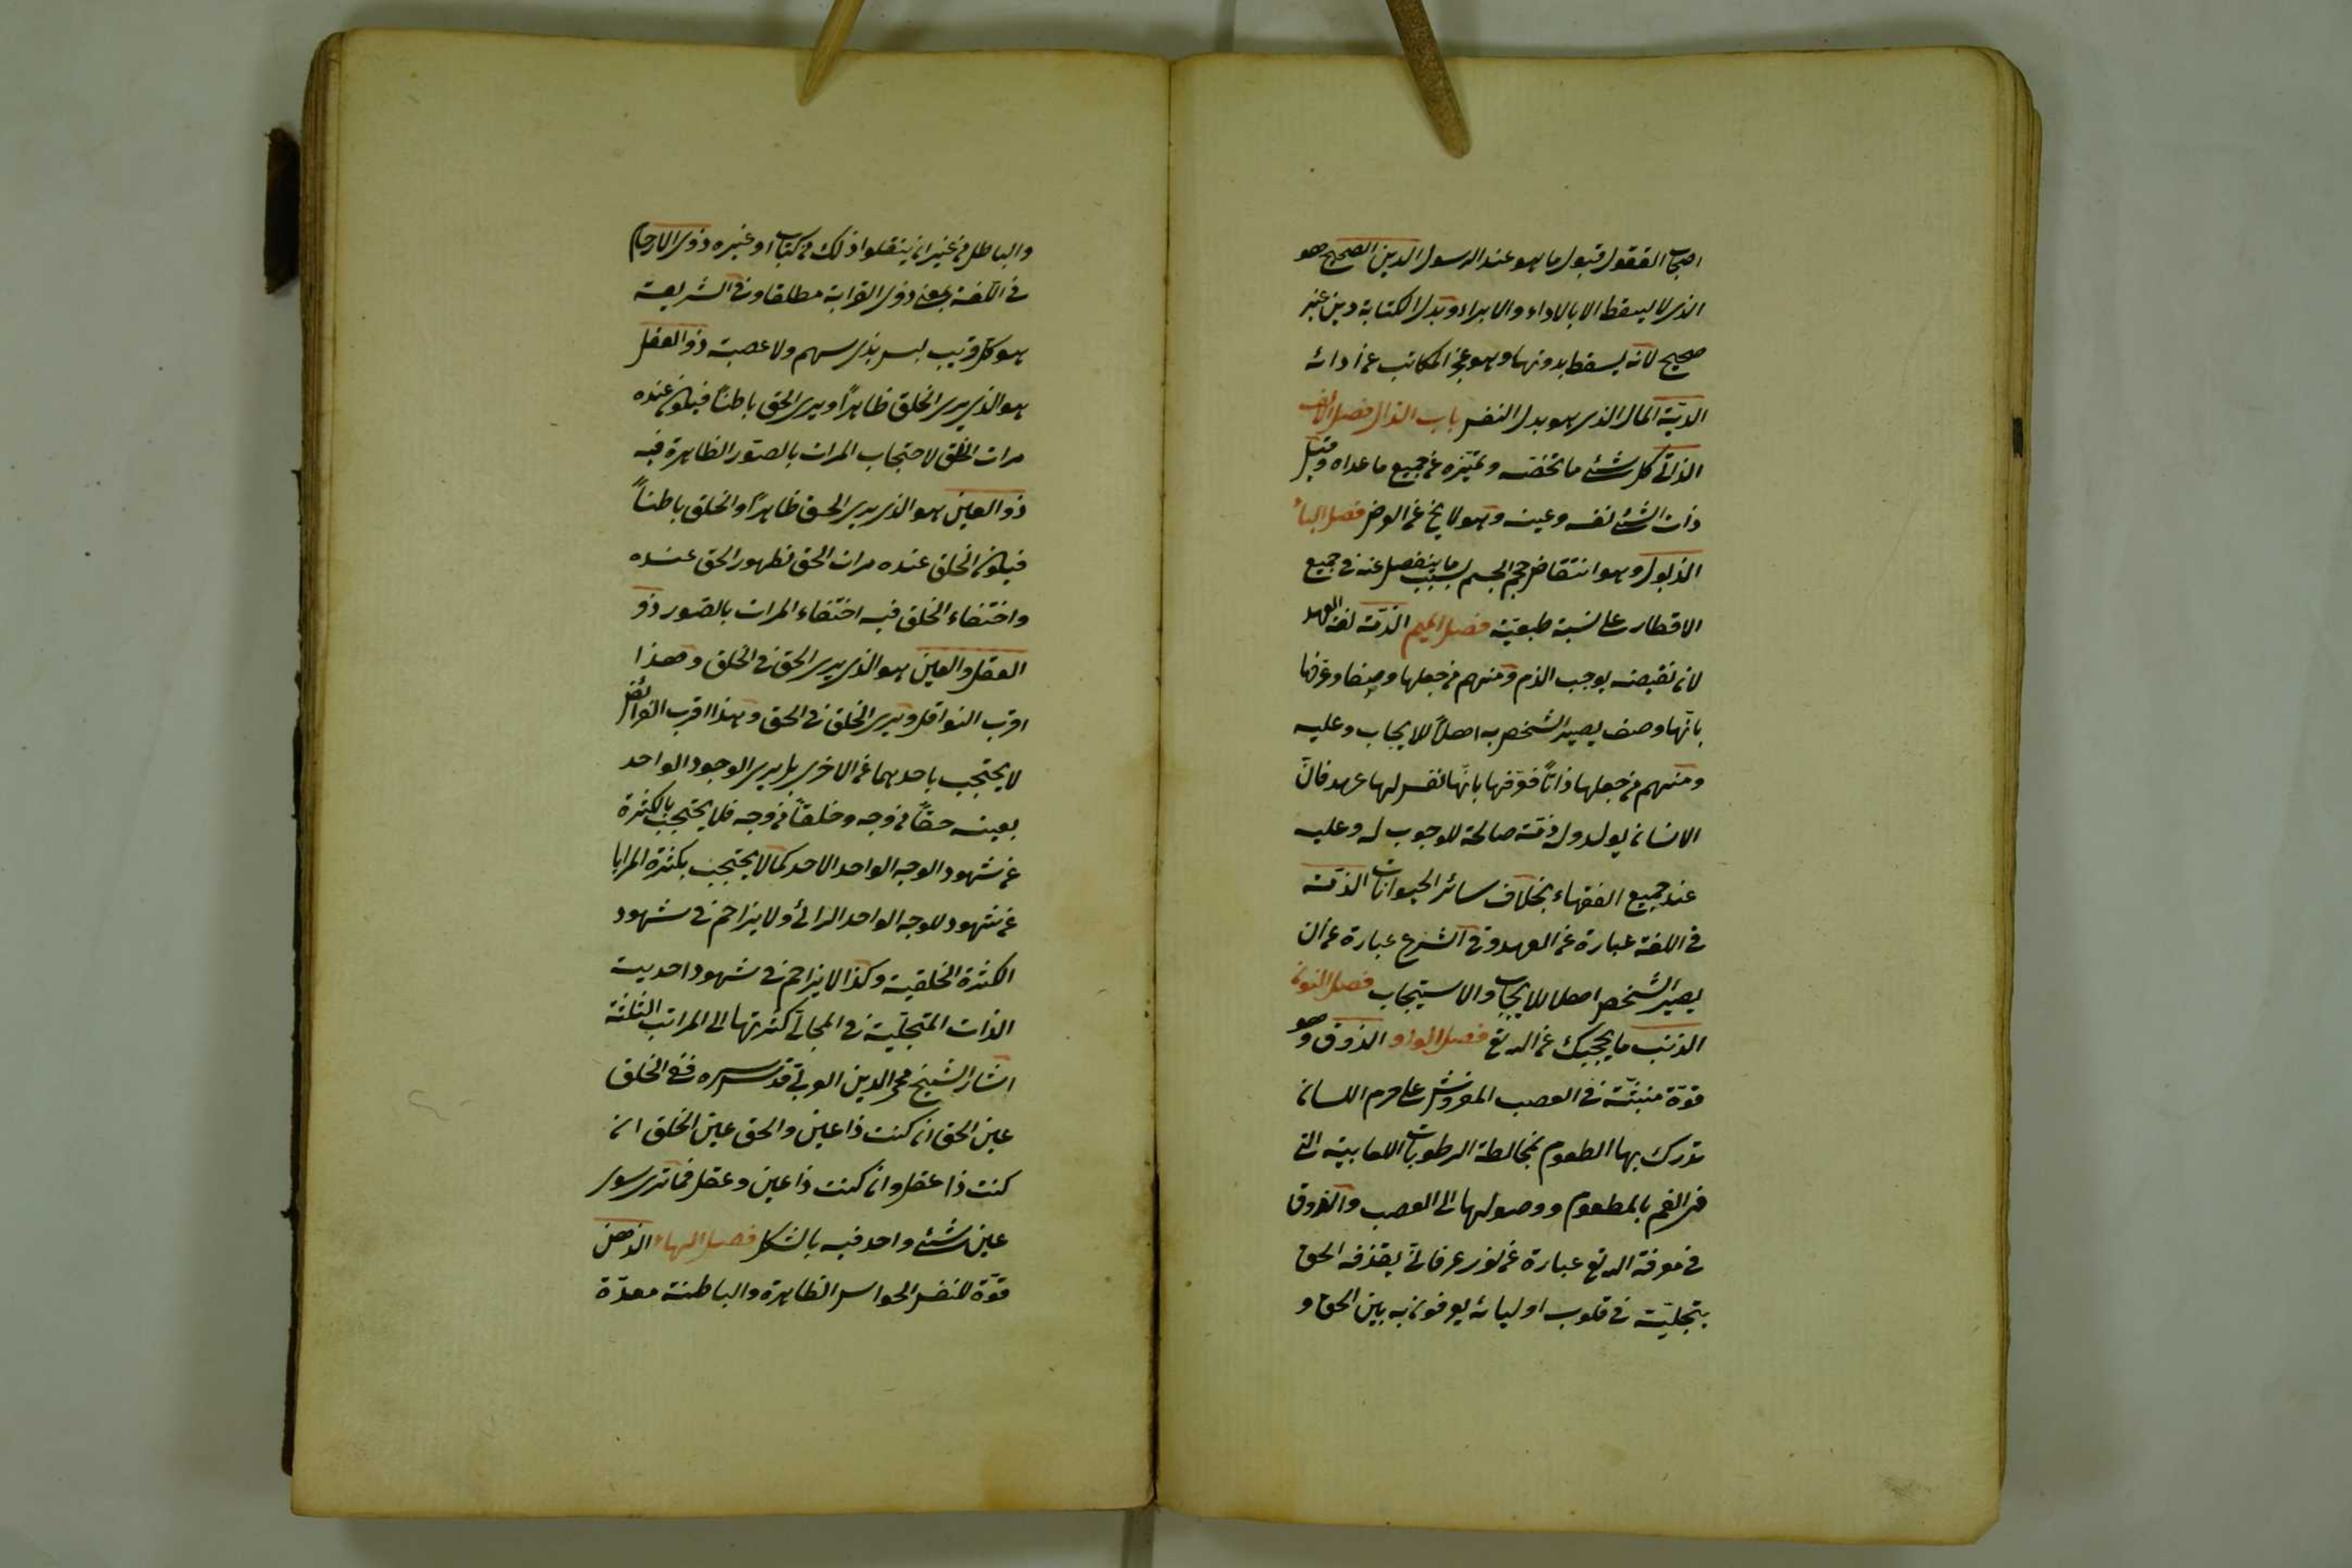 اصحاب العقول قبول ما هو عند الرسول الدين الصحيح هو
الذى لا يسقط الا بالاداء والابراء وبدل الكتابة دين غير
صحيح لانه يسقط بدونهما وهو عجز المكاتب عن أدائه
الدية المال الذى هو بدل النفس باب الذال فصل الالف
الذاتى كل شئ ما يخصه ويميزه عن جميع ما عداه وقيل
ذات الشئ نفسه وعينه وهو لا يخ عن العرض فصل الباء
الذبول وهو انتقاص حجم الجسم بسبب ما ينفصل عنه فى جميع
الاقطار على نسبة طبيعية فصل الميم الذمة لغة العهد
لان نقضه يوجب الذم ومنهم من جعلها وصفا وعرفها
بانها وصف يصير الشخص به اهلاً للايجاب وعليه
ومنهم من جعلها ذاتاً فعرفها بانها نفس لها عهد فان
الانسان يولد وله ذمة صالحة للوجوب له وعليه
عند جميع الفقهاء بخلاف سائر الحيوانات الذمة
فى اللغة عبارة عن العهد وفى الشرع عبارة عن ان
يصير الشخص اهلا للايجاب والاستيجاب فصل النون
الذنب ما يحجبك عن الله تع فصل الواو الذوق وهو
قوة منبثة فى العصب المفروش على جرم اللسان
تدرك بها الطعوم بمخالطة الرطوبات اللعابية التى
فى الفم بالمطعوم ووصولها الى العصب والذوق
فى معرفة الله تع عبارة عن نور عرفانى يقذفه الحق
بتجليته فى قلوب اوليائه يعرفون به بين الحق و
والباطل من غير ان ينقلوا ذلك من كتاب او غيره ذوى الارحام
فى اللغة بمعنى ذوى القرابة مطلقا وفى الشريعة
هو كل قريب ليس بذى سهم ولا عصبة ذو العقل
هو الذى يرى الخلق ظاهراً ويرى الحق باطناً فيكون عنده
مرات الخلق لاحتجاب المرات بالصور الظاهرة فيه
ذو العين هو الذى يرى الحق ظاهراً والخلق باطناً
فيكون الخلق عنده مرات الحق لظهور الحق عنده
واختفاء الخلق فيه اختفاء المرات بالصور ذو
العقل والعين هو الذى يرى الحق فى الخلق وهذا
اقرب النوافل ويرى الخلق فى الحق وهذا اقرب الفرائض
لا يحتجب باحدهما عن الاخر بل يرى الوجود الواحد
بعينه حقاً من وجه وخلقاً من وجه فلا يحتجب بالكثرة
عن شهود الوجه الواحد الاحد كما لا يحتجب بكثرة المرايا
عن شهود للوجه الواحد الرائى ولا يزاحم فى شهود
الكثرة الخلقية وكذا لا يزاحم فى شهود احدية
الذات المتجلية فى المجالى كثرتها الى المراتب الثلثة
اشار الشيخ محى الدين العربى قدس سره ففى الخلق
عين الحق ان كنت ذا عين والحق عين الخلق ان
كنت ذا عقل وان كنت ذا عين وعقل فما ترى سوى
عين شئ واحد فيه بالشكل فصل الهاء الذهن
قوة للنفس الحواس الظاهرة والباطنة معدّة